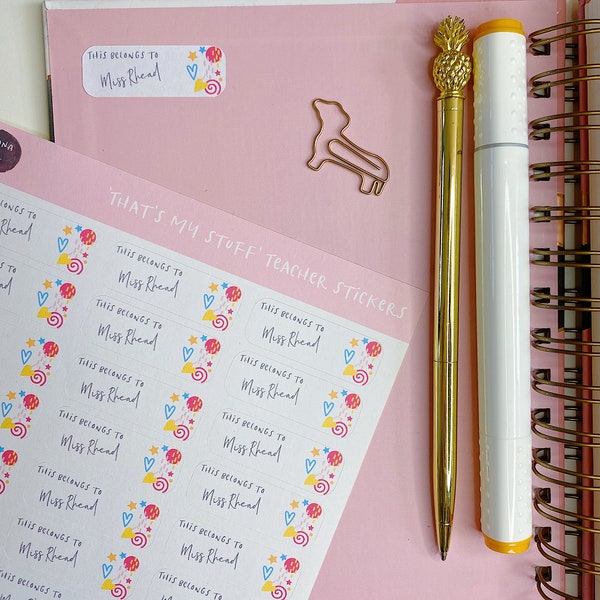 THIS BELONGS TO
Miss Rhead
'THAT'S MY STUFF' TEACHER STICKERS
BELONGS TO
Rhead
THIS BELONGS TO
Miss Rhead
THIS BELONGS TO
Miss Rhead
THIS BELONGS TO
Miss Rhead
THIS BELONGS TO
Miss Rhead
THIS BELONGS TO
Miss Rhead
THIS BELONGS TO
Miss Rhead
THIS BELONGS TO
THIS BELONGS TO
Miss Rhead
THIS BELONGS TO
Miss Rhead
THIS BELONGS TO
Miss Rhead
THIS BELONGS TO
Miss Rhead
THIS BELONGS TO
Miss Rhead
THIS BELONGS TO